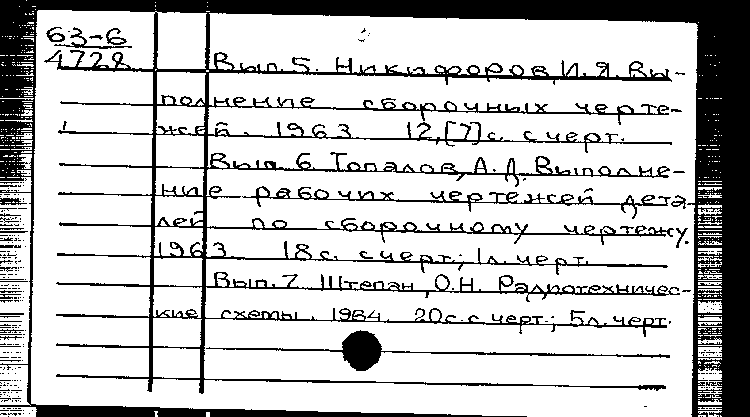 63-6
4728
Вып. 5. Никифоров, И. Я. Вы-
полнение сборочных черте-
жей. 1963. 12, [7] с. с черт.
Вып. 6. Топалов, А. Д. Выполне-
ние рабочих чертежей дета-
лей по сборочному чертежу.
1963. 18 с. с черт.; 1 л. черт.
Вып. 7. Штепан, О. Н. Радиотехничес-
кие схемы. 1964. 20 с. с черт.; 5 л. черт.